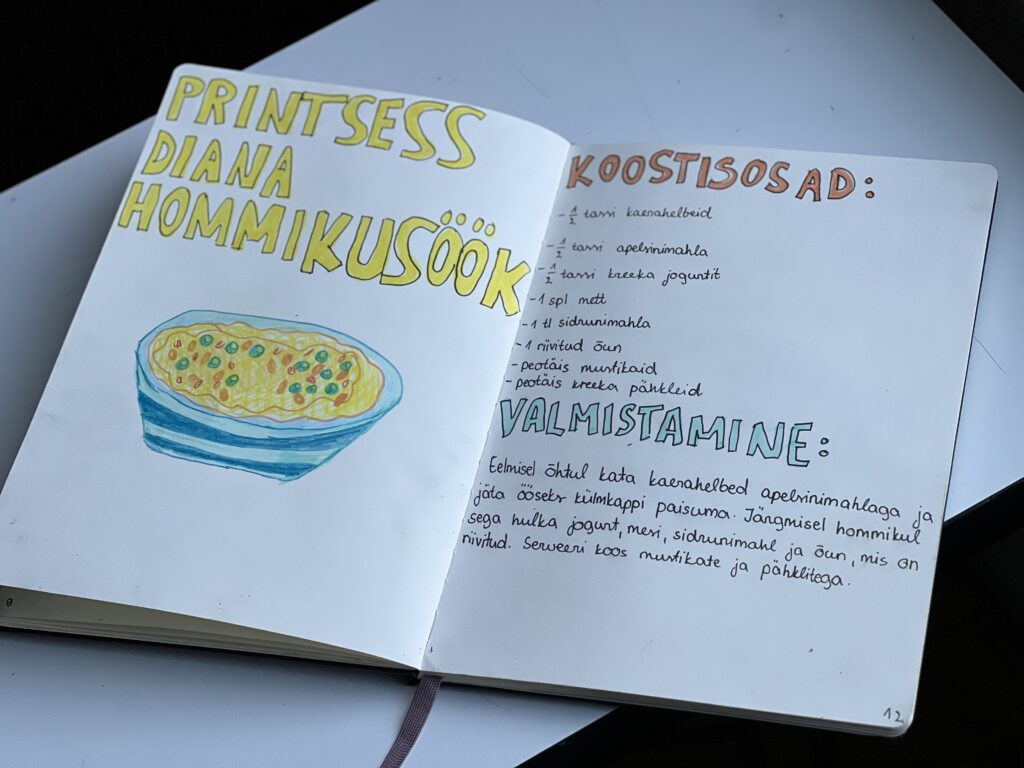 PRINTSESS
DIANA
HOMMIKUSÖÖK
KOOSTISOSAD:
- 1/2 tassi kaerahelbeid
- 1/2 tassi apelsinimahla
- 1/2 tassi kreeka jogurtit
- 1 spl mett
- 1 tl sidrunimahla
- 1 riivitud õun
- peotäis mustikaid
- peotäis kreeka pähkleid
VALMISTAMINE:
Eelmisel õhtul kata kaerahelbed apelsinimahlaga ja
jäta ööseks külmkappi paisuma. Järgmisel hommikul
sega hulka jogurt, mesi, sidrunimahl ja õun, mis on
riivitud. Serveeri koos mustikate ja pähklitega.
12